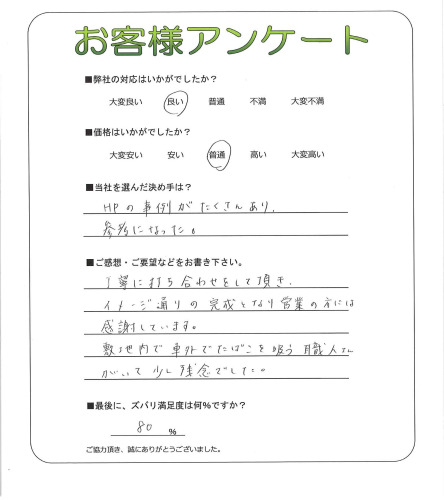 お客様アンケート
■弊社の対応はいかがでしたか?
大変良い 良い 普通 不満 大変不満
■価格はいかがでしたか?
大変安い 安い 普通 高い 大変高い
■当社を選んだ決め手は?
HPの事例がたくさんあり、
参考になった。
■ご感想・ご要望などをお書き下さい。
丁寧に打ち合わせをして頂き、
イメージ通りの完成となり営業の方には
感謝しています。
敷地内で車外でたばこを吸う職人さん
がいて少し残念でした。
■最後に、ズバリ満足度は何%ですか?
80 %
ご協力頂き、誠にありがとうございました。